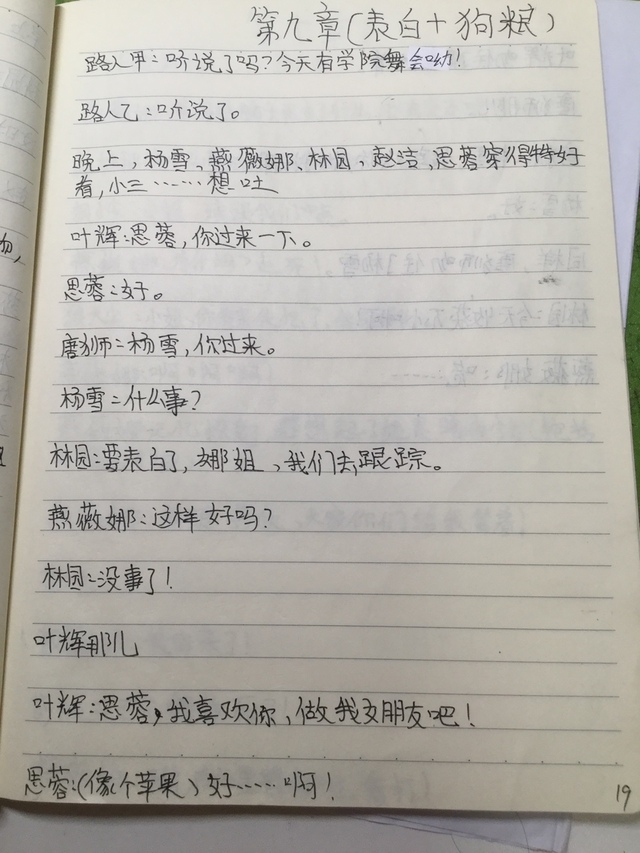 第九章(表白+狗粮)
路人甲:听说了吗?今天有学院舞会呦!
路人乙:听说了。
晚上,杨雪、燕薇娜、林园、赵洁、思蓉穿得特好
看,小三……想吐
叶辉:思蓉,你过来一下。
思蓉:好。
唐狮:杨雪,你过来。
杨雪:什么事?
林园:要表白了,娜姐,我们去跟踪。
燕薇娜:这样好吗?
林园:没事了!
叶辉那儿
叶辉:思蓉,我喜欢你,做我女朋友吧!
思蓉:(像个苹果)好……啊!
19